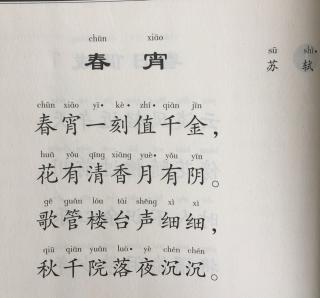 chūn xiāo
春宵
sū shì•
苏轼
chūn xiāo yī• kè• zhí• qiān jīn
春宵一刻值千金，
huā yǒu qīng xiāng yuè• yǒu yīn
花有清香月有阴。
gē guǎn lóu tái shēng xì xì
歌管楼台声细细，
qiū qiān yuàn luò• yè chén chén
秋千院落夜沉沉。